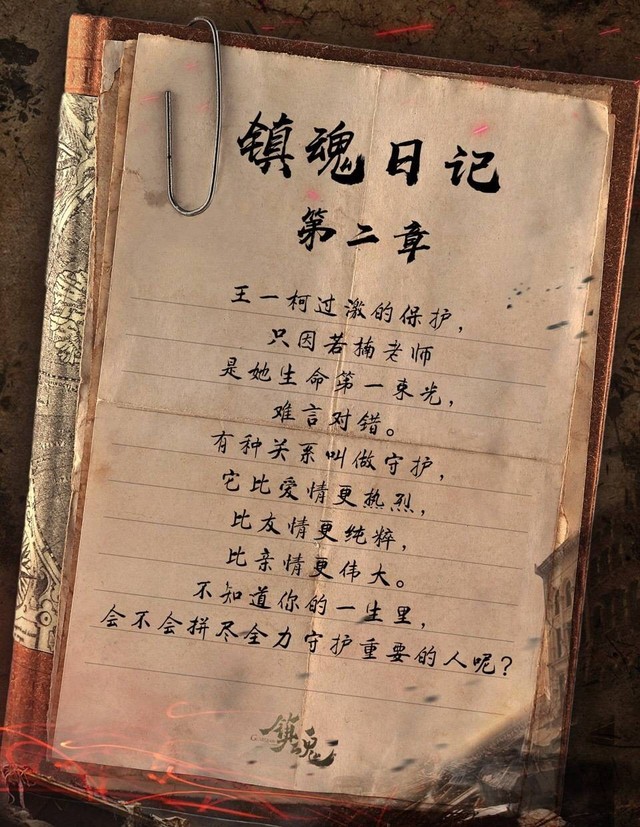 镇魂日记
第二章
王一柯过激的保护，
只因若楠老师
是她生命第一束光，
难言对错。
有种关系叫做守护，
它比爱情更热烈，
比友情更纯粹，
比亲情更伟大。
不知道你的一生里，
会不会拼尽全力守护重要的人呢？
镇魂